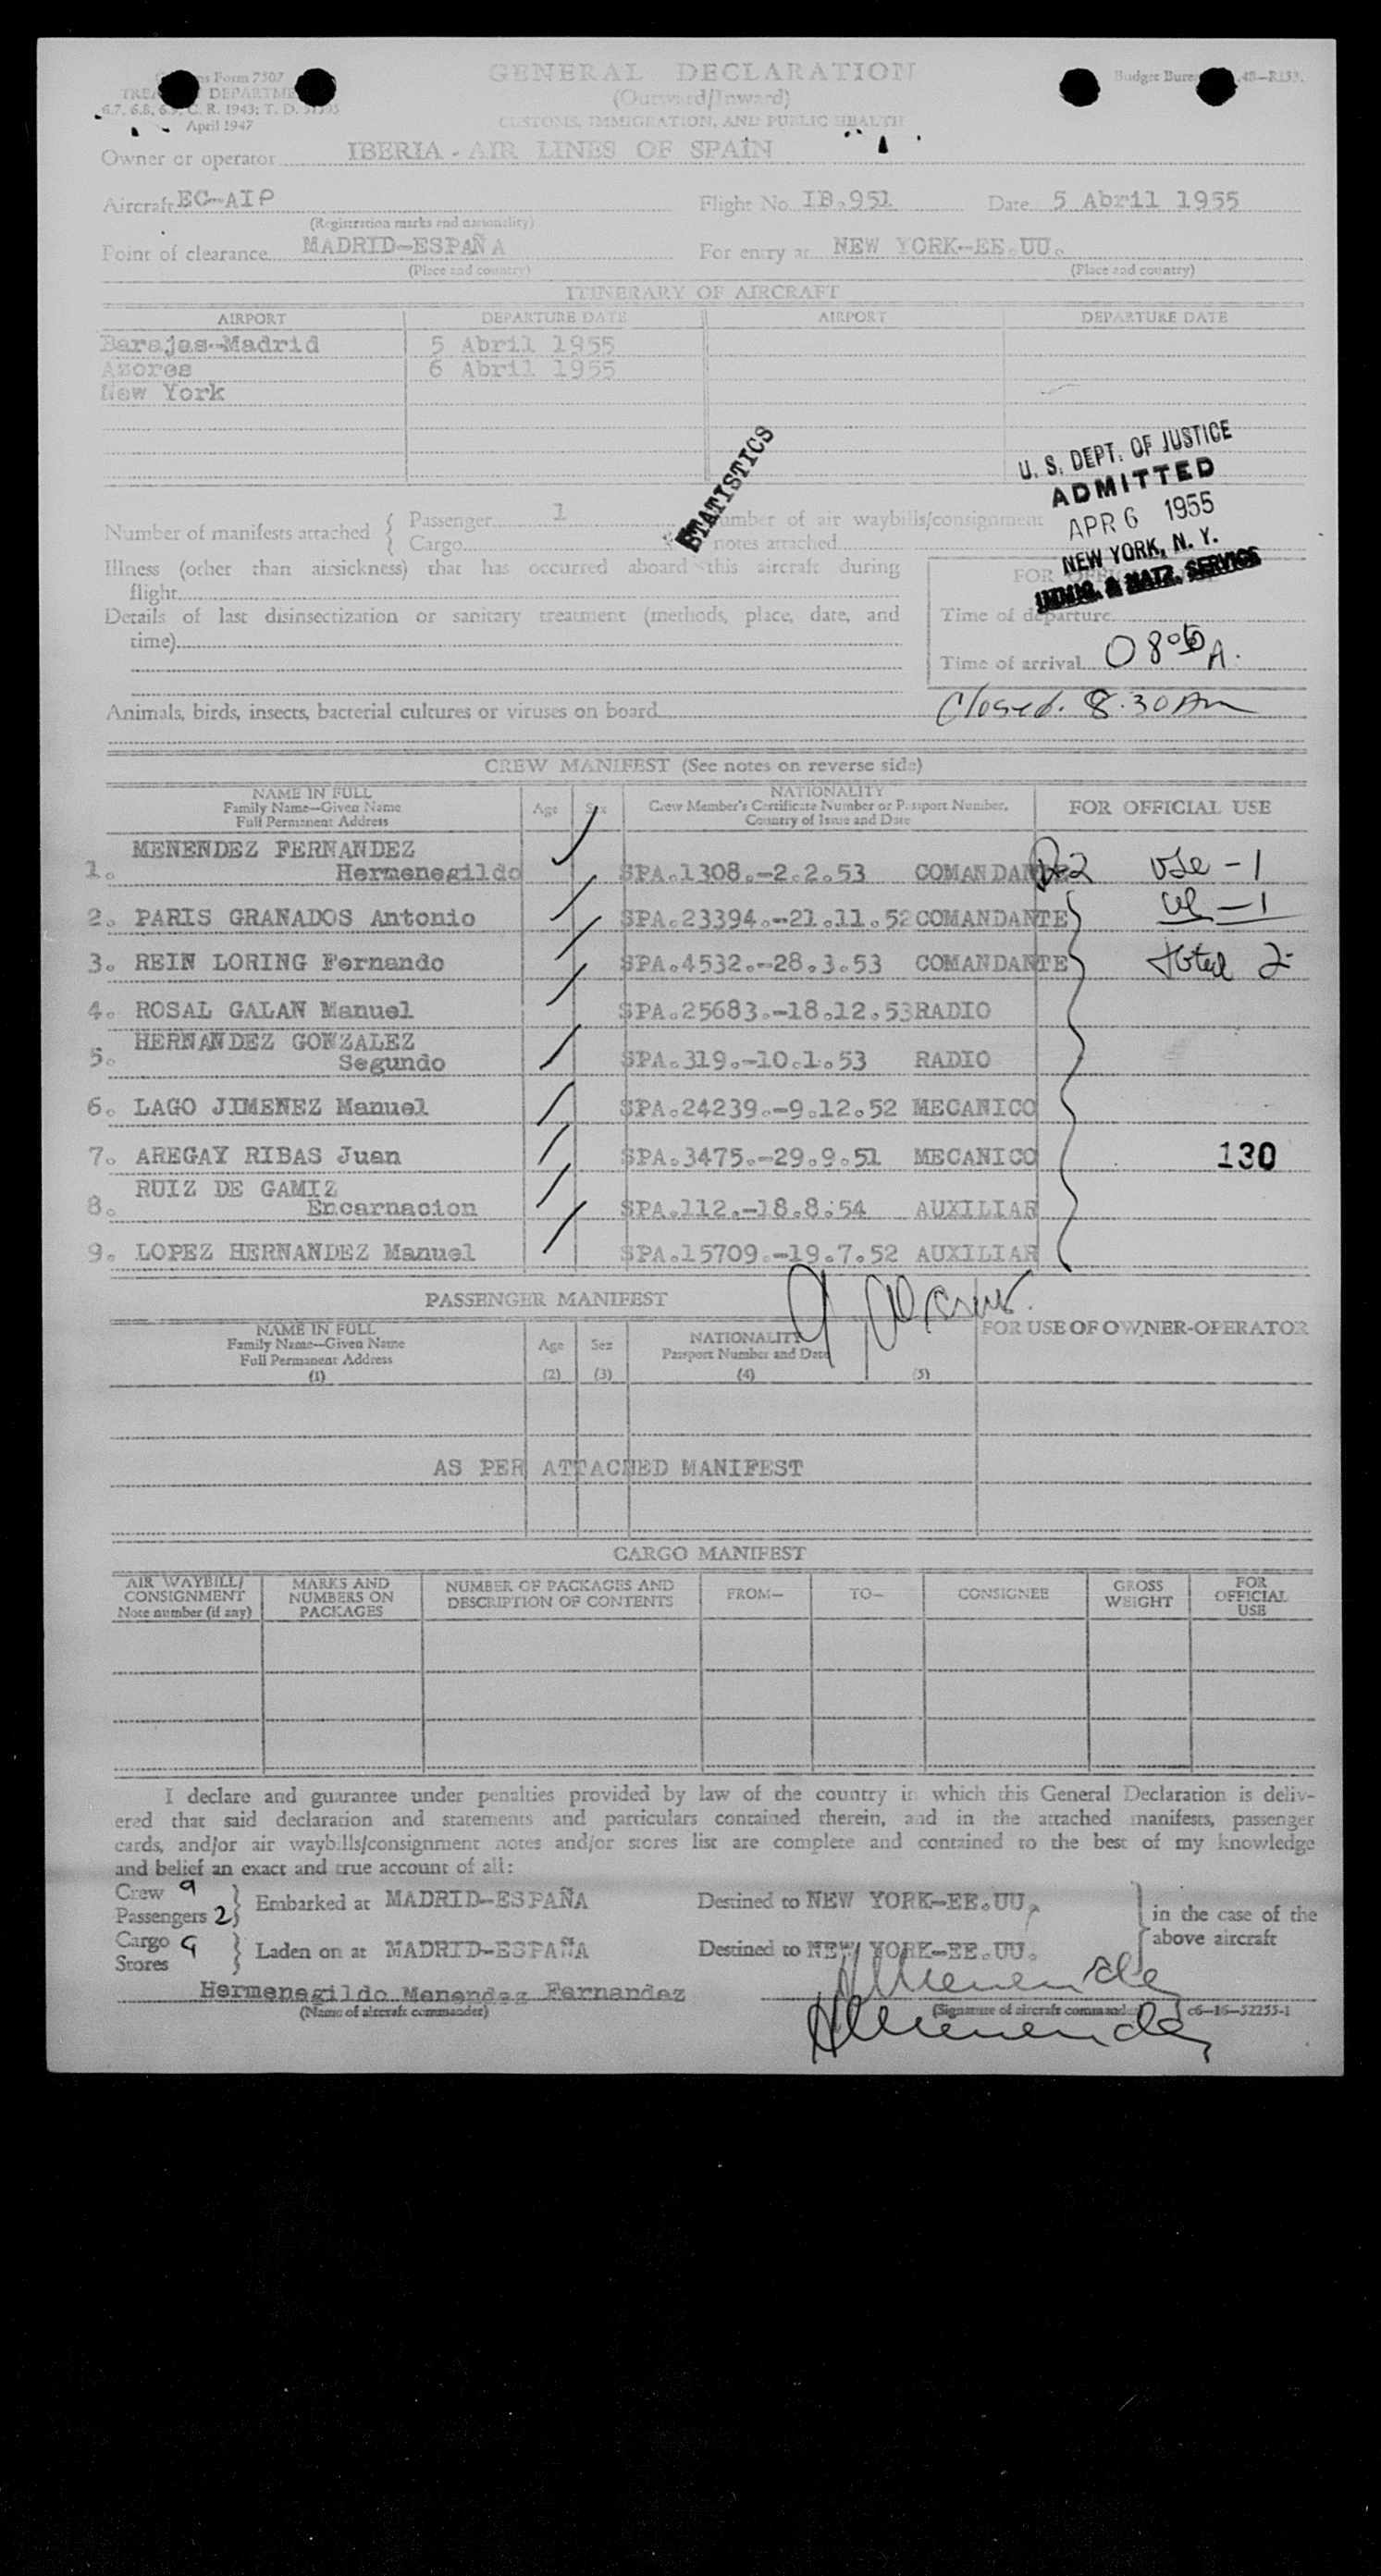 Form 7507
GENERAL DECLARATION
(Outward/Inward)
CUSTOMS, IMMIGRATION, AND PUBLIC HEALTH
6.7, 6.8, 6.9, C. R. 1943; T. D.
April 1947
Owner or operator IBERIA - AIR LINES OF SPAIN
Aircraft EC-AIP Flight No. IB.951 Date 5 Abril 1955
(Registration marks and nationality)
Point of clearance MADRID-ESPAÑA For entry at NEW YORK-EE.UU.
(Place and country) (Place and country)
ITINERARY OF AIRCRAFT
AIRPORT DEPARTURE DATE AIRPORT DEPARTURE DATE
Barajas-Madrid 5 Abril 1955
Azores 6 Abril 1955
New York
STATISTICS
U. S. DEPT. OF JUSTICE
ADMITTED
APR 6 1955
NEW YORK, N. Y.
IMMIG. & NATZ. SERVICE
Number of manifests attached { Passenger 1 Number of air waybills/consignment
Cargo notes attached
Illness (other than airsickness) that has occurred aboard this aircraft during
flight
FOR
Details of last disinsectization or sanitary treatment (methods, place, date, and
time)
Time of departure
Time of arrival A.
Closed. 8.30 Am
Animals, birds, insects, bacterial cultures or viruses on board
CREW MANIFEST (See notes on reverse side)
NAME IN FULL
Family Name—Given Name
Full Permanent Address
Age Sex
NATIONALITY
Crew Member's Certificate Number or Passport Number,
Country of Issue and Date
FOR OFFICIAL USE
1. MENENDEZ FERNANDEZ
Hermenegildo SPA.1308.-2.2.53 COMANDANTE
2. PARIS GRANADOS Antonio SPA.23394.-21.11.52 COMANDANTE
3. REIN LORING Fernando SPA.4532.-28.3.53 COMANDANTE total 2
4. ROSAL GALAN Manuel SPA.25683.-18.12.53 RADIO
5. HERNANDEZ GONZALEZ
Segundo SPA.319.-10.1.53 RADIO
6. LAGO JIMENEZ Manuel SPA.24239.-9.12.52 MECANICO
7. AREGAY RIBAS Juan SPA.3475.-29.9.51 MECANICO 130
8. RUIZ DE GAMIZ
Encarnacion SPA.112.-18.8.54 AUXILIAR
9. LOPEZ HERNANDEZ Manuel SPA.15709.-19.7.52 AUXILIAR
PASSENGER MANIFEST
NAME IN FULL
Family Name—Given Name
Full Permanent Address
(1)
Age
(2)
Sex
(3)
NATIONALITY
Passport Number and Date
(4)
(5)
FOR USE OF OWNER-OPERATOR
AS PER ATTACHED MANIFEST
CARGO MANIFEST
AIR WAYBILL/
CONSIGNMENT
Note number (if any)
MARKS AND
NUMBERS ON
PACKAGES
NUMBER OF PACKAGES AND
DESCRIPTION OF CONTENTS
FROM—
TO—
CONSIGNEE
GROSS
WEIGHT
FOR
OFFICIAL
USE
I declare and guarantee under penalties provided by law of the country in which this General Declaration is deliv-
ered that said declaration and statements and particulars contained therein, and in the attached manifests, passenger
cards, and/or air waybills/consignment notes and/or stores list are complete and contained to the best of my knowledge
and belief an exact and true account of all:
Crew 9
Passengers 2 } Embarked at MADRID-ESPAÑA Destined to NEW YORK-EE.UU.
in the case of the
above aircraft
Cargo
Stores } Laden on at MADRID-ESPAÑA Destined to NEW YORK-EE.UU.
Hermenegildo Menendez Fernandez
(Name of aircraft commander) (Signature of aircraft commander) c6-16-52255-1
HMenendez